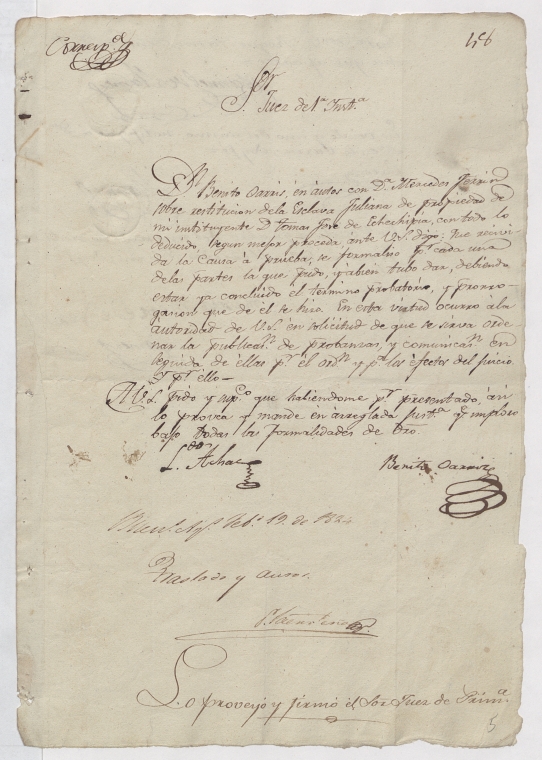 48
Sor
Juez de 1ª. Instª.
Dn. Benito Oarris, en autos con Dª. Mercedes
sobre restitucion dela Esclava Juliana de propiedad de
mi instituyente Dn. Tomas Jose de Echechipia, contodo lo
deducido, segun mejor proceda ante V.S. digo: Que recivi
da la Causa à prueba, se formalisó pr. cada una
delas partes la que pudo, y àbien tubo dar, debiendo
estar ya concluido el termino probatorio, y prorro-
gacion que de el se hiso. En esta virtud ocurro ala
autoridad de V.S. en solicitud de que se sirva orde
nar la publicasn. de probansas, y comunicasn. en
seguida de ellas pª. el ordn. y pª. los efectos del juicio
Y pr. ello—
A V.S. pido y supco. que habiendome pr. presentado, asi
lo provea y mande en àrreglada Justª. que imploro
bajo todas las formalidades de Dro.
Ldo.
Benito Oarris
Febo. 19. de 182
Traslado y autos.
Lo proveyó y firmó el Sor. Juez de Primª.
5